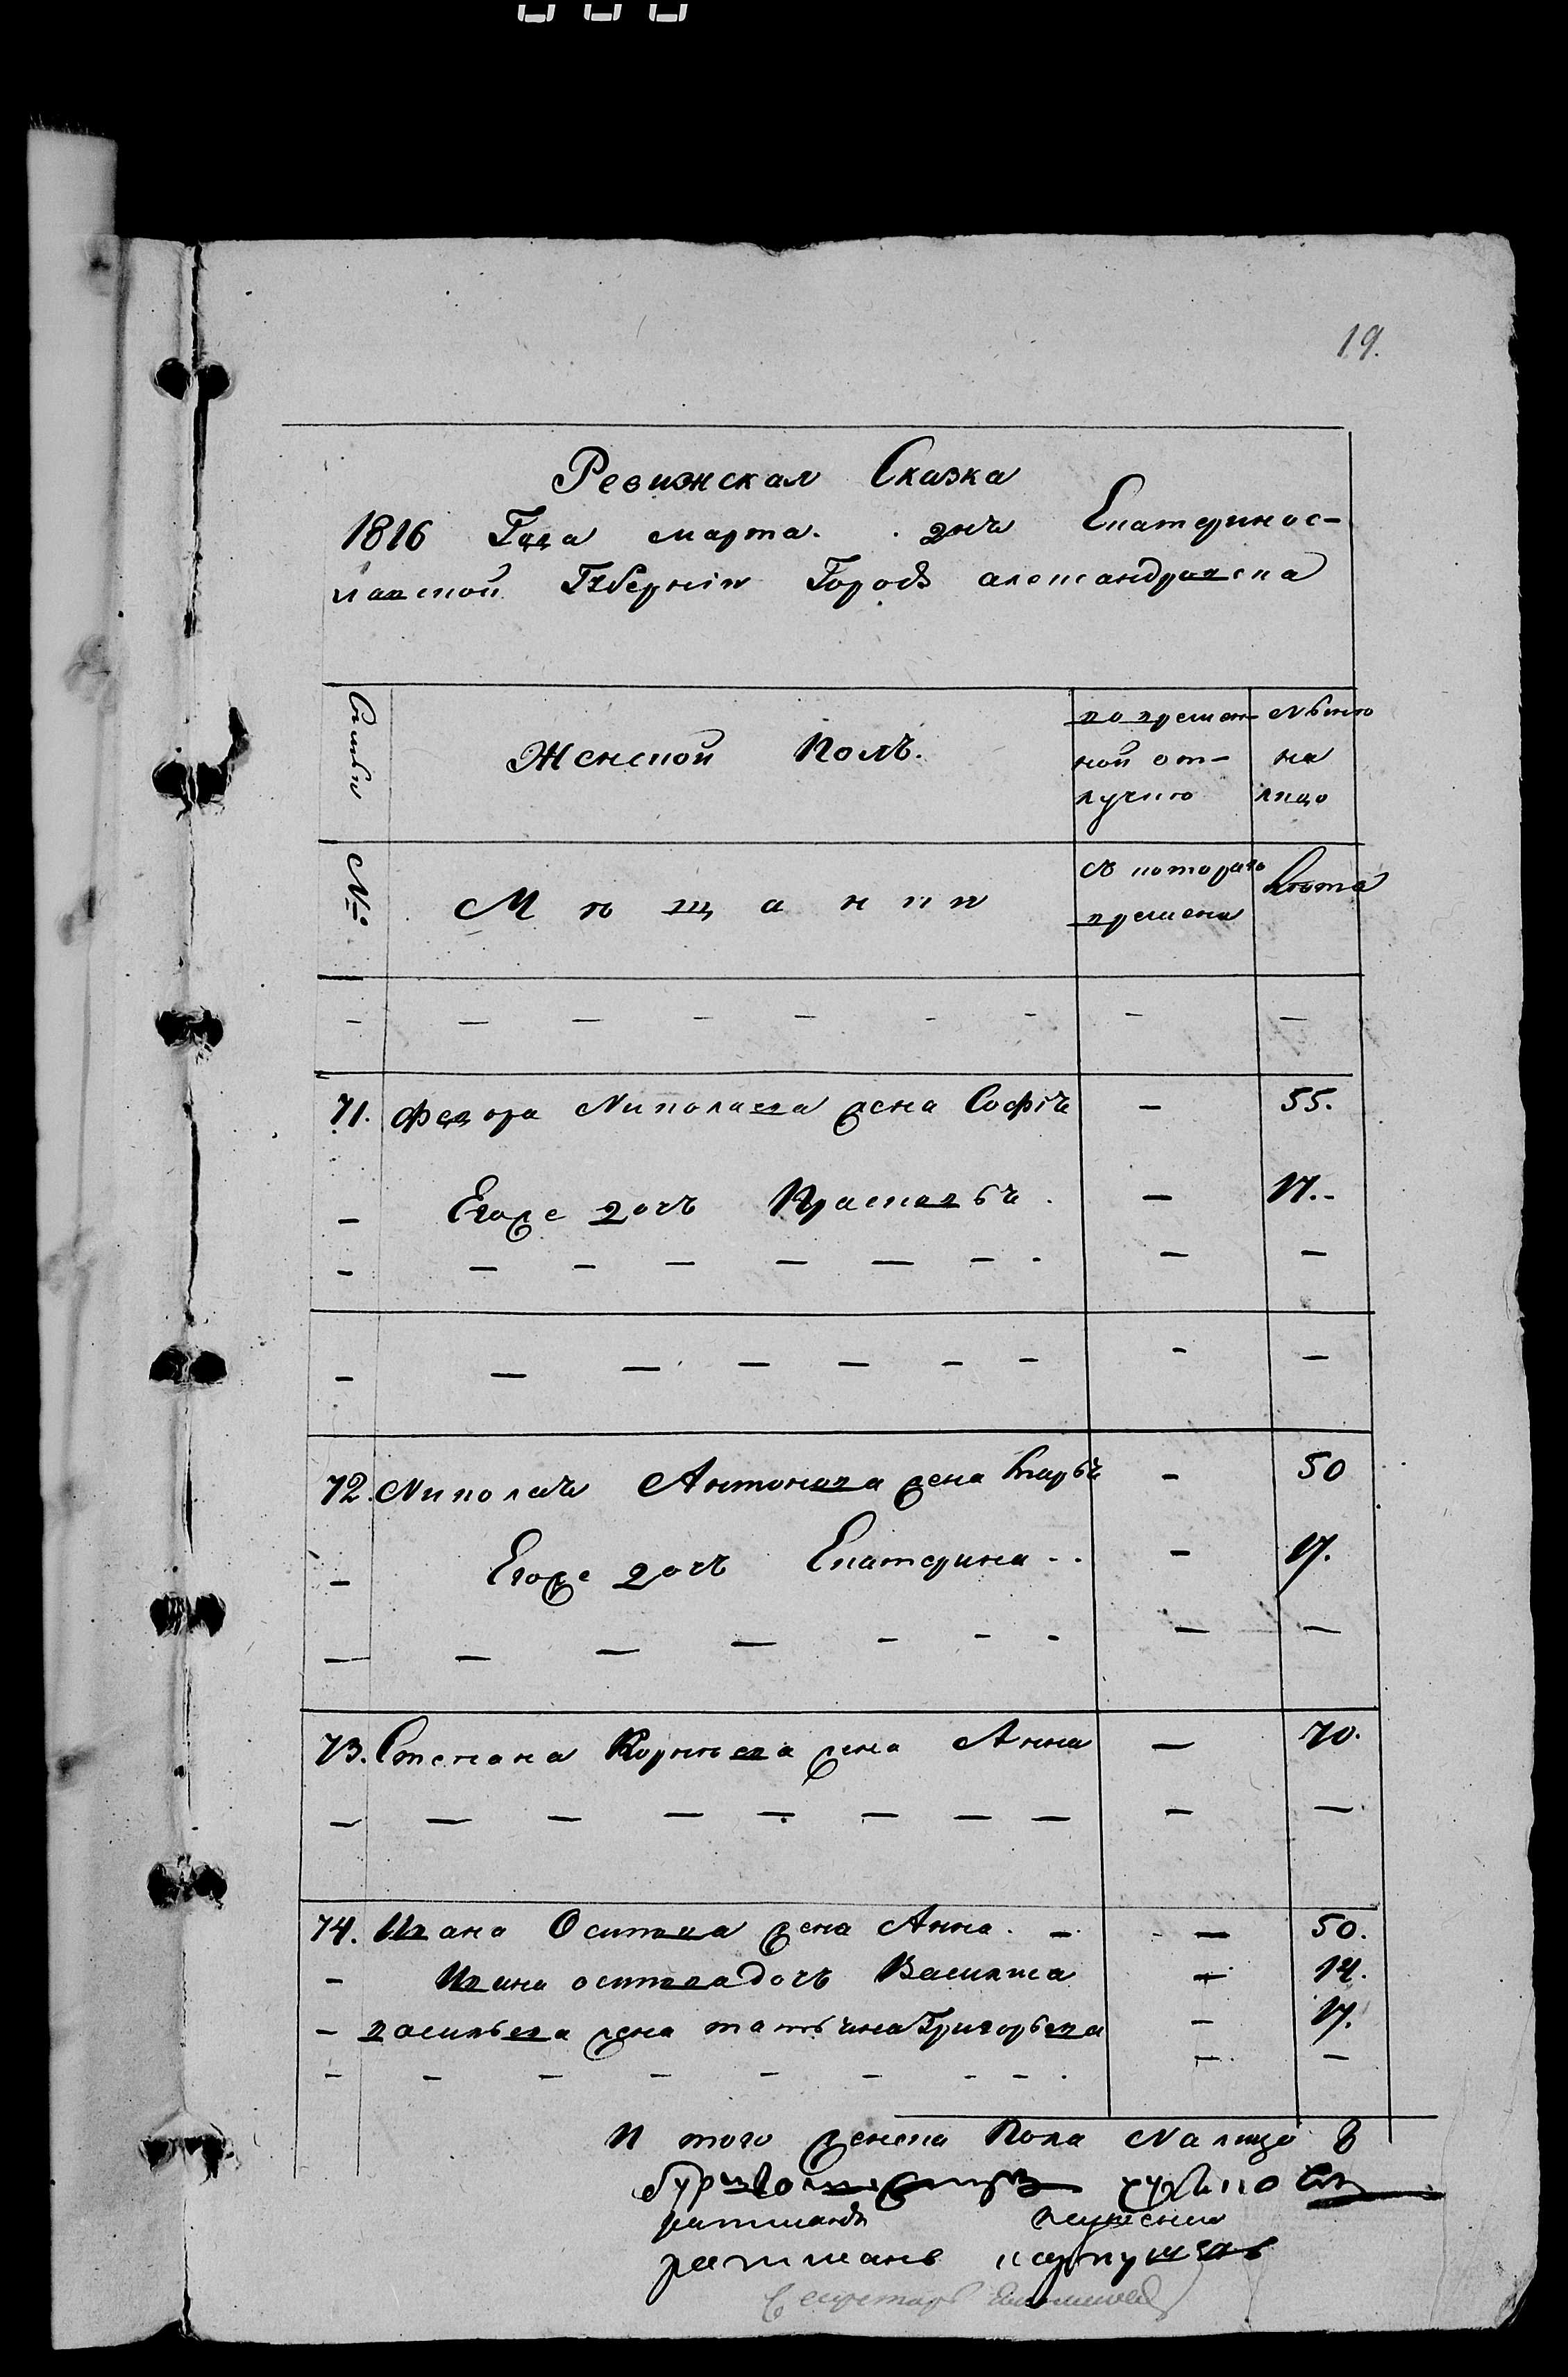 19.
Ревизская Сказка
1816 Года марта. дня Екатеринос-
лавской Губерніи Города александровска
Семьи
Женской Полъ.
во времен-
ной от-
лучкѣ
Нынѣ
на
лицо
№
Мѣщанки
Съ котораго
времени
Лѣта
71. Федора Николаева жена Софія — 55.
— Егоже дочь Прасковья — 17.
72. Николая Антонова жена Марья — 50
— Егоже дочь Екатерина — 17.
73. Степана Корнѣева жена Анна — 70.
74. Ивана Осипова жена Анна — 50.
— Ивана осипова дочь Василиса — 14.
— василъева жена татьяна Григорьева — 17.
И того женска Пола На лицо 8
ратманъ
ратманъ
Секретарь